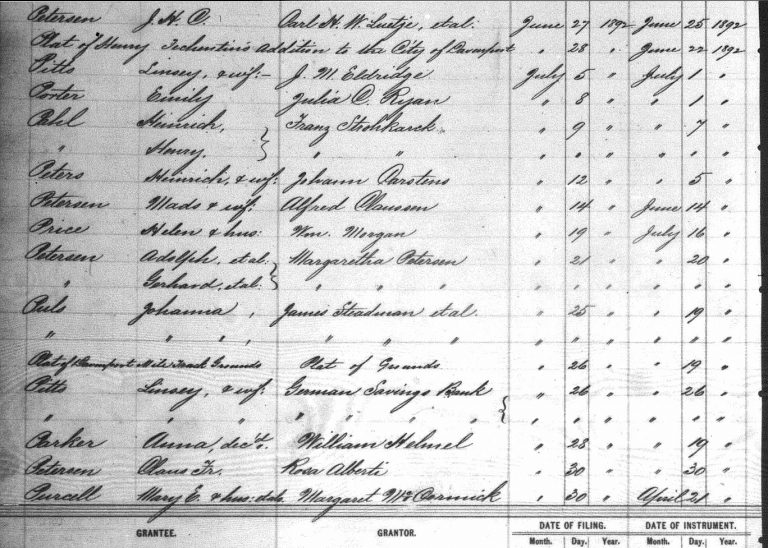 Petersen J. H. C. Carl H. W. Luetje, et al: June 27 1892 June 25 1892
Plat of Henry Techentin's Addition to the City of Davenport " 28 " June 22 1892
Pitts Linsey, & wf:- J. M. Eldridge July 5 " July 1 "
Porter Emily Julia C. Ryan " 8 " " 1 "
Pehl Heinrich, } Franz Strohkarck " 9 " " 7 "
" Henry. " " " " " " " "
Peters Heinrich, & wf: Johann Carstens " 12 " " 5 "
Petersen Mads & wf: Alfred Claussen " 14 " June 14 "
Price Helen & hus: Wm. Morgan " 19 " July 16 "
Petersen Adolph, et al: } Margaretha Petersen " 21 " " 20 "
" Gerhard, et al: " " " " " " " " "
Puls Johanna, James Steadman et al. " 25 " " 19 "
" " " , " " " " " " " " "
Plat of Davenport Mile Track Grounds Plat of Grounds " 26 " " 19 "
Pitts Linsey, & wf: German Savings Bank } " 26 " " 26 "
" " " " " " " " " " " "
Parker Anna, dec'd. William Helmel " 28 " " 19 "
Petersen Claus Jr. Rosa Alberti " 30 " " 30 "
Purcell Mary E. & hus: Margaret McCormick " 30 " April 21 "
GRANTEE. GRANTOR. DATE OF FILING. DATE OF INSTRUMENT.
Month. Day. Year. Month. Day. Year.